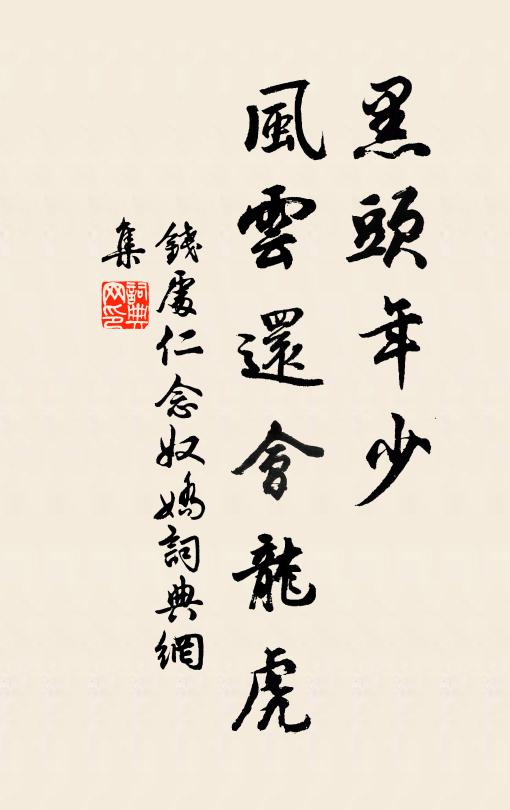 黑頭年少
風雲還會龍虎
錢處仁念奴嬌詞典網
集
詞典
网印